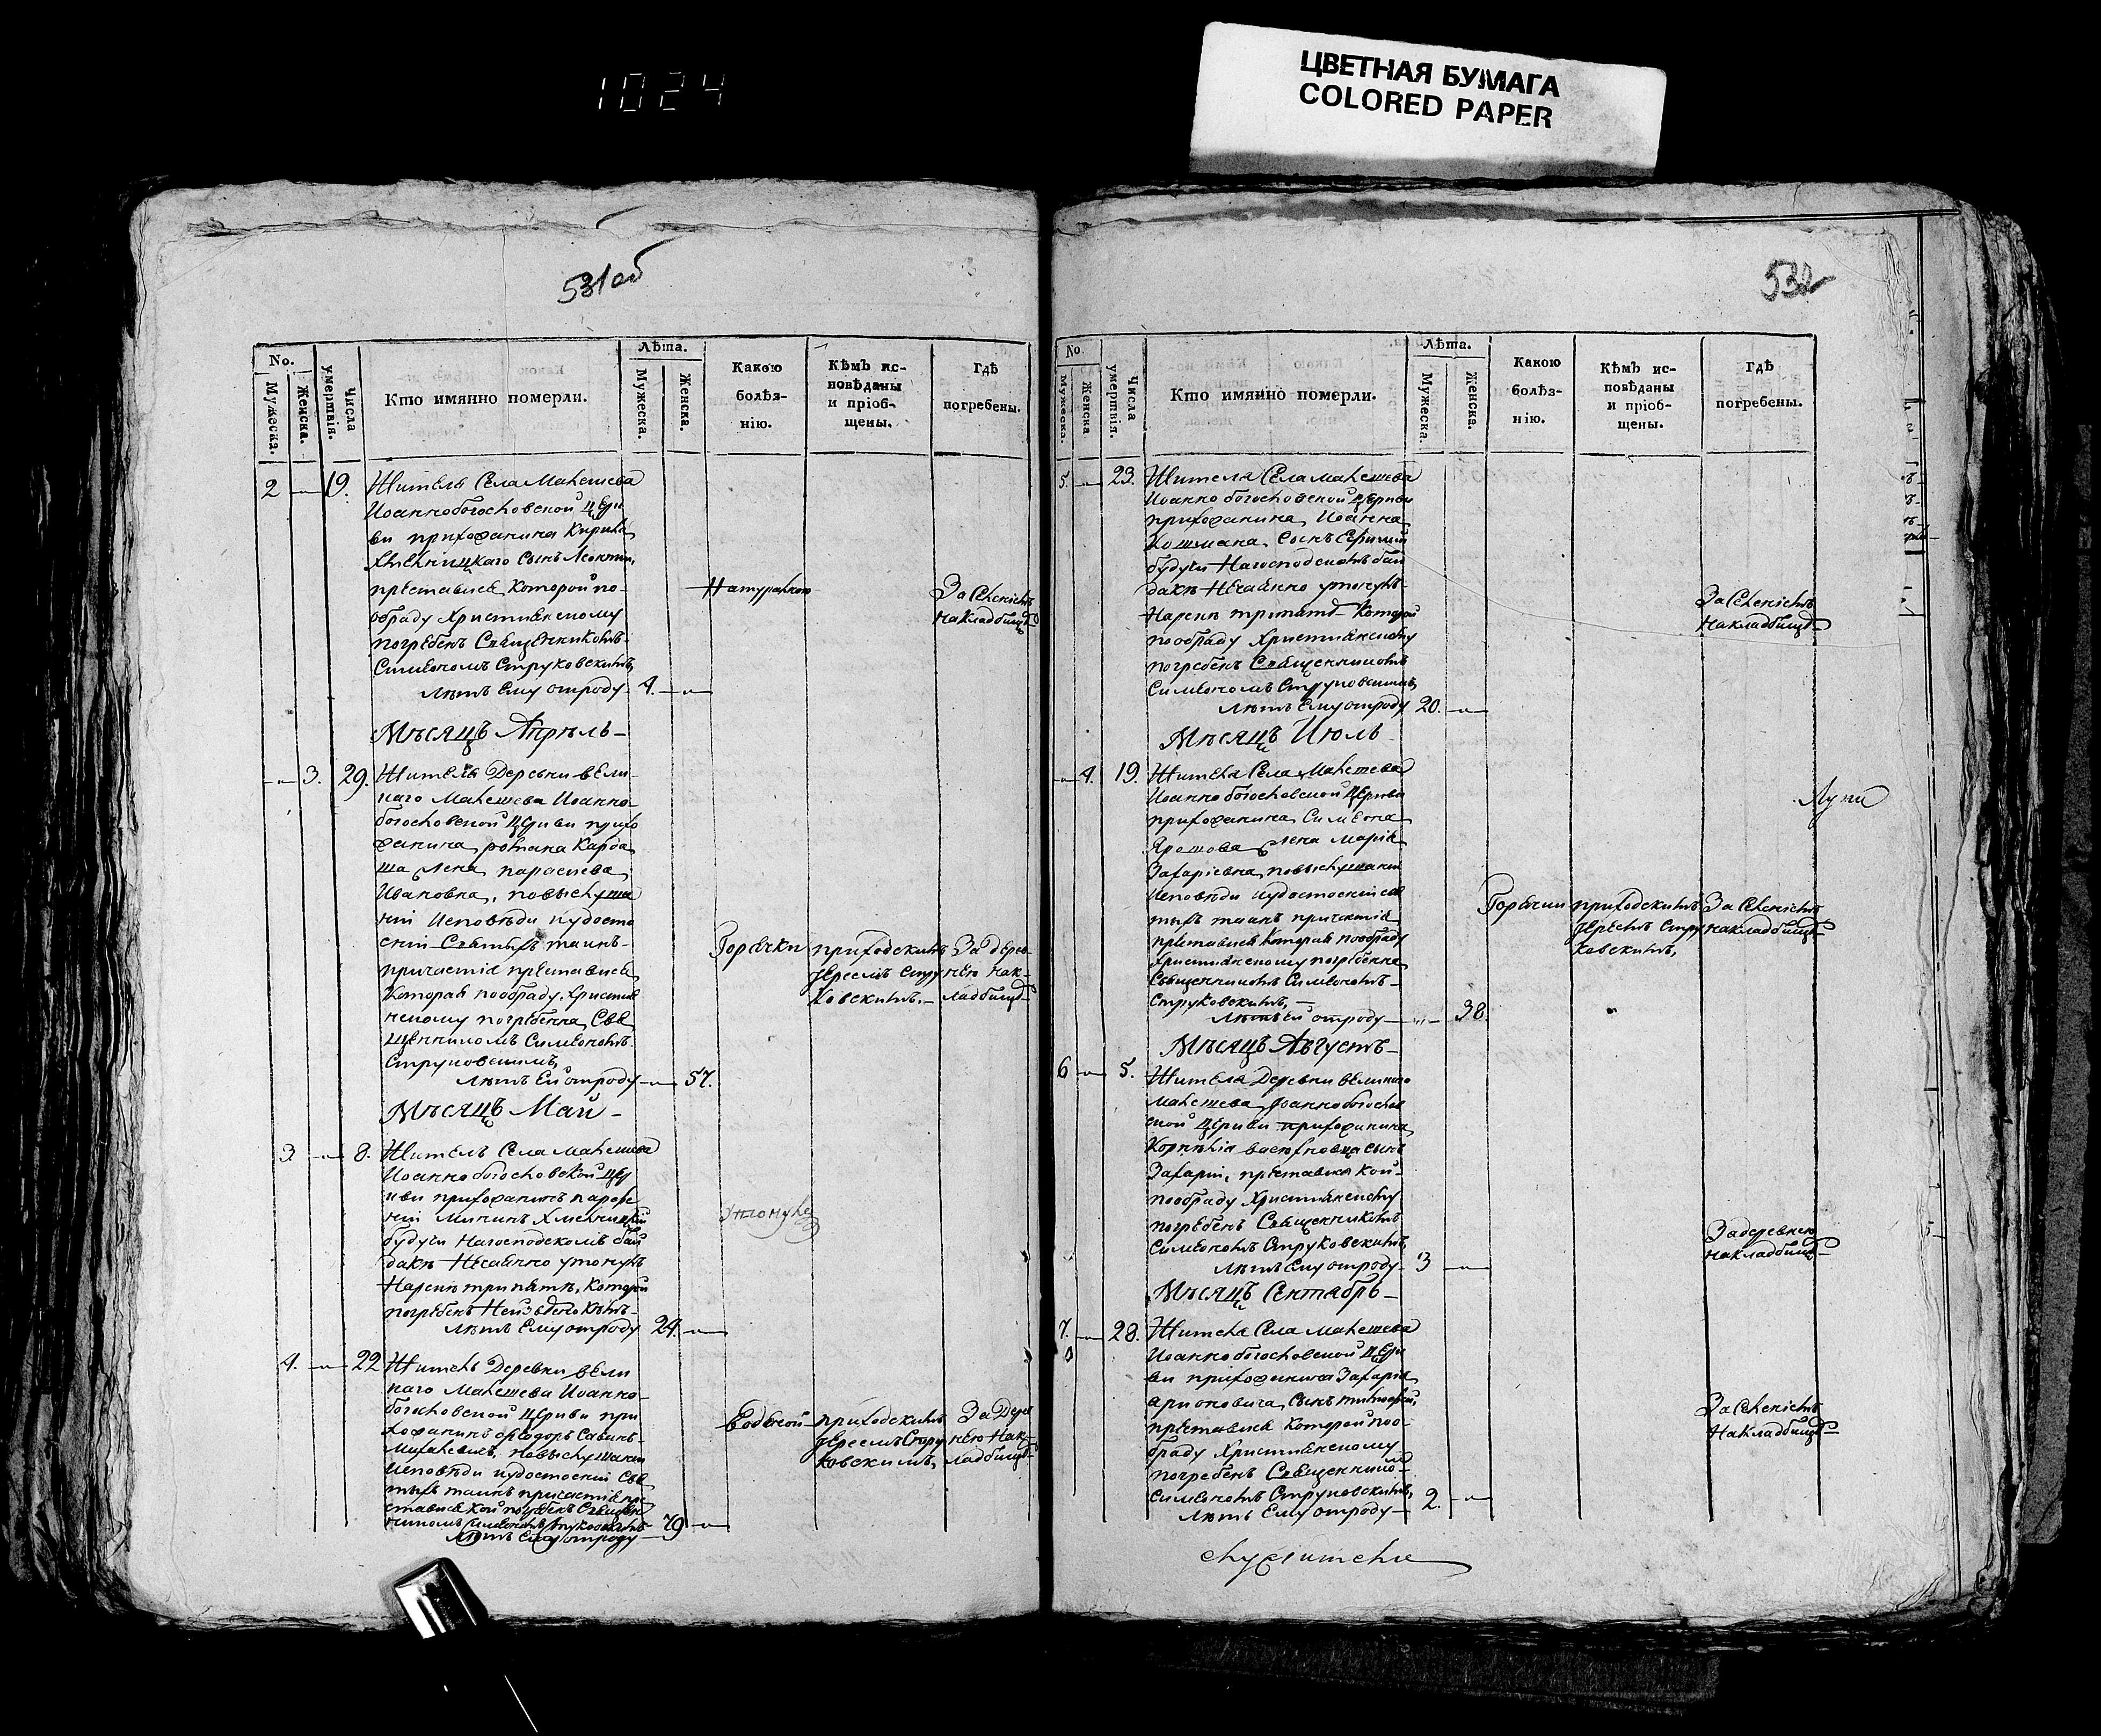 1024
ЦВЕТНАЯ БУМАГА
COLORED PAPER
531об
No.
Мужеска.
Женска.
Числа умертвія.
Кто имянно померли.
Лѣта.
Мужеска.
Женска.
Какою
болѣз-
нію.
Кѣмъ ис-
повѣданы
и пріоб-
щены.
Гдѣ
погребены.
2 19. Жителя Села Макешева
Иоаннобогословской Церк
ви прихожанина Кирила
Хмельницкаго Сынъ Леонтий,
преставися Которой по-
обряду Християнскому
погребенъ Священникомъ-
Симеономъ Струковскимъ,
лѣтъ Ему отроду 4.
Натуральною
За Селениемъ
На кладбищѣ
Мѣсяцъ Апрѣль-
3. 29. Жителя Деревни Вели-
каго Макешева Иоанно-
богословской Церкви прихо
жанина, романа Карба
ша жена параскева
Ивановна, повыслуша
нии Исповѣди иудосто
ении Святыхъ таинъ-
причастия преставися
Которая пообряду Християн
нскому погребенна Свя
щенникомъ Симеономъ
Струковскимъ,
лѣтъ Ей отроду 57.
Горячки
приходскимъ
Иереемъ Стру
ковскимъ.-
За дерев-
нею нак-
ладбищѣ
Мѣсяцъ Май-
3 8. Житель Села Макешева
Иоаннобогословской Цер
кви прихожанинъ пароѳе
ний Хмельницкий
будучи Нагосподскомъ бай
дакѣ Нечаянно утонулъ
Нареке припятѣ, Которой
погребенъ
лѣтъ Ему отроду 24.
Утонулъ
4. 22 Житель Деревни Вели
каго Макешева Иоанно-
богословской Церкви при
хожанинъ ѳеодоръ Савинъ-
повыслушании
Исповѣди иудостоении Свя
тыхъ таинъ причастия пре
ставися кой погребенъ Священ
никомъ Симеономъ Струковскимъ
лѣтъ Ему отроду 79
Водяной
приходскимъ
Иереемъ Стру
ковскимъ,
За Дерев
нею Нак-
ладбищѣ
532
No
Мужеска.
Женска
Числа умертвія.
Кто имянно померли.
Лѣта.
Мужеска.
Женска.
Какою
болѣз-
нію.
Кѣмъ ис-
повѣданы
и пріоб-
щены.
Гдѣ
погребены.
5. 23. Жителя Села Макешева
Иоаннобогословской Церкви
прихожанина, Иоанна
Кошмана, Сынъ
будучи Нагосподскомъ бай
дакѣ Нечаянно утонулъ-
Нареке припятѣ Которой
пообряду Християнскому
погребенъ Священникомъ
Симеономъ Струковскимъ,
лѣтъ Ему отроду 20.
За Селениемъ
На кладбищѣ
Мѣсяцъ Июль
4. 19. Жителя Села Макешева
Иоаннобогословской Церкви
прихожанина, Симеона
Ярошова жена Мария
Захариевна, повыслушании
Исповѣди иудостоении свя
тыхъ таинъ причастия
преставися Которая пообряду
Християнскому погребенна
Священникомъ Симеономъ-
Струковскимъ,-
лѣтъ ей отроду 38.
Горячки
приходскимъ
Иереемъ Стру
ковскимъ,
За Селениемъ
На кладбищѣ
Мѣсяцъ Августъ-
6 5. Жителя Деревни Великаго
Макешева, Иоаннобогослов
ской Церкви прихожанина,
Корнѣлія сынъ
Захарий, преставися Кой-
пообряду Християнскому
погребенъ Священникомъ
Симеономъ Струковскимъ,
лѣтъ Ему отроду 3
За деревнею
На кладбищѣ
Мѣсяцъ Сентябрь-
7. 28. Жителя Села Макешева
Иоаннобогословской Церк
ви прихожанина Захария
сынъ тимоѳей,
преставися Которой поо-
бряду Християнскому
погребенъ Священнико-
Симеономъ Струковскимъ,
лѣтъ Ему отроду 2.
За Селениемъ
На кладбищѣ